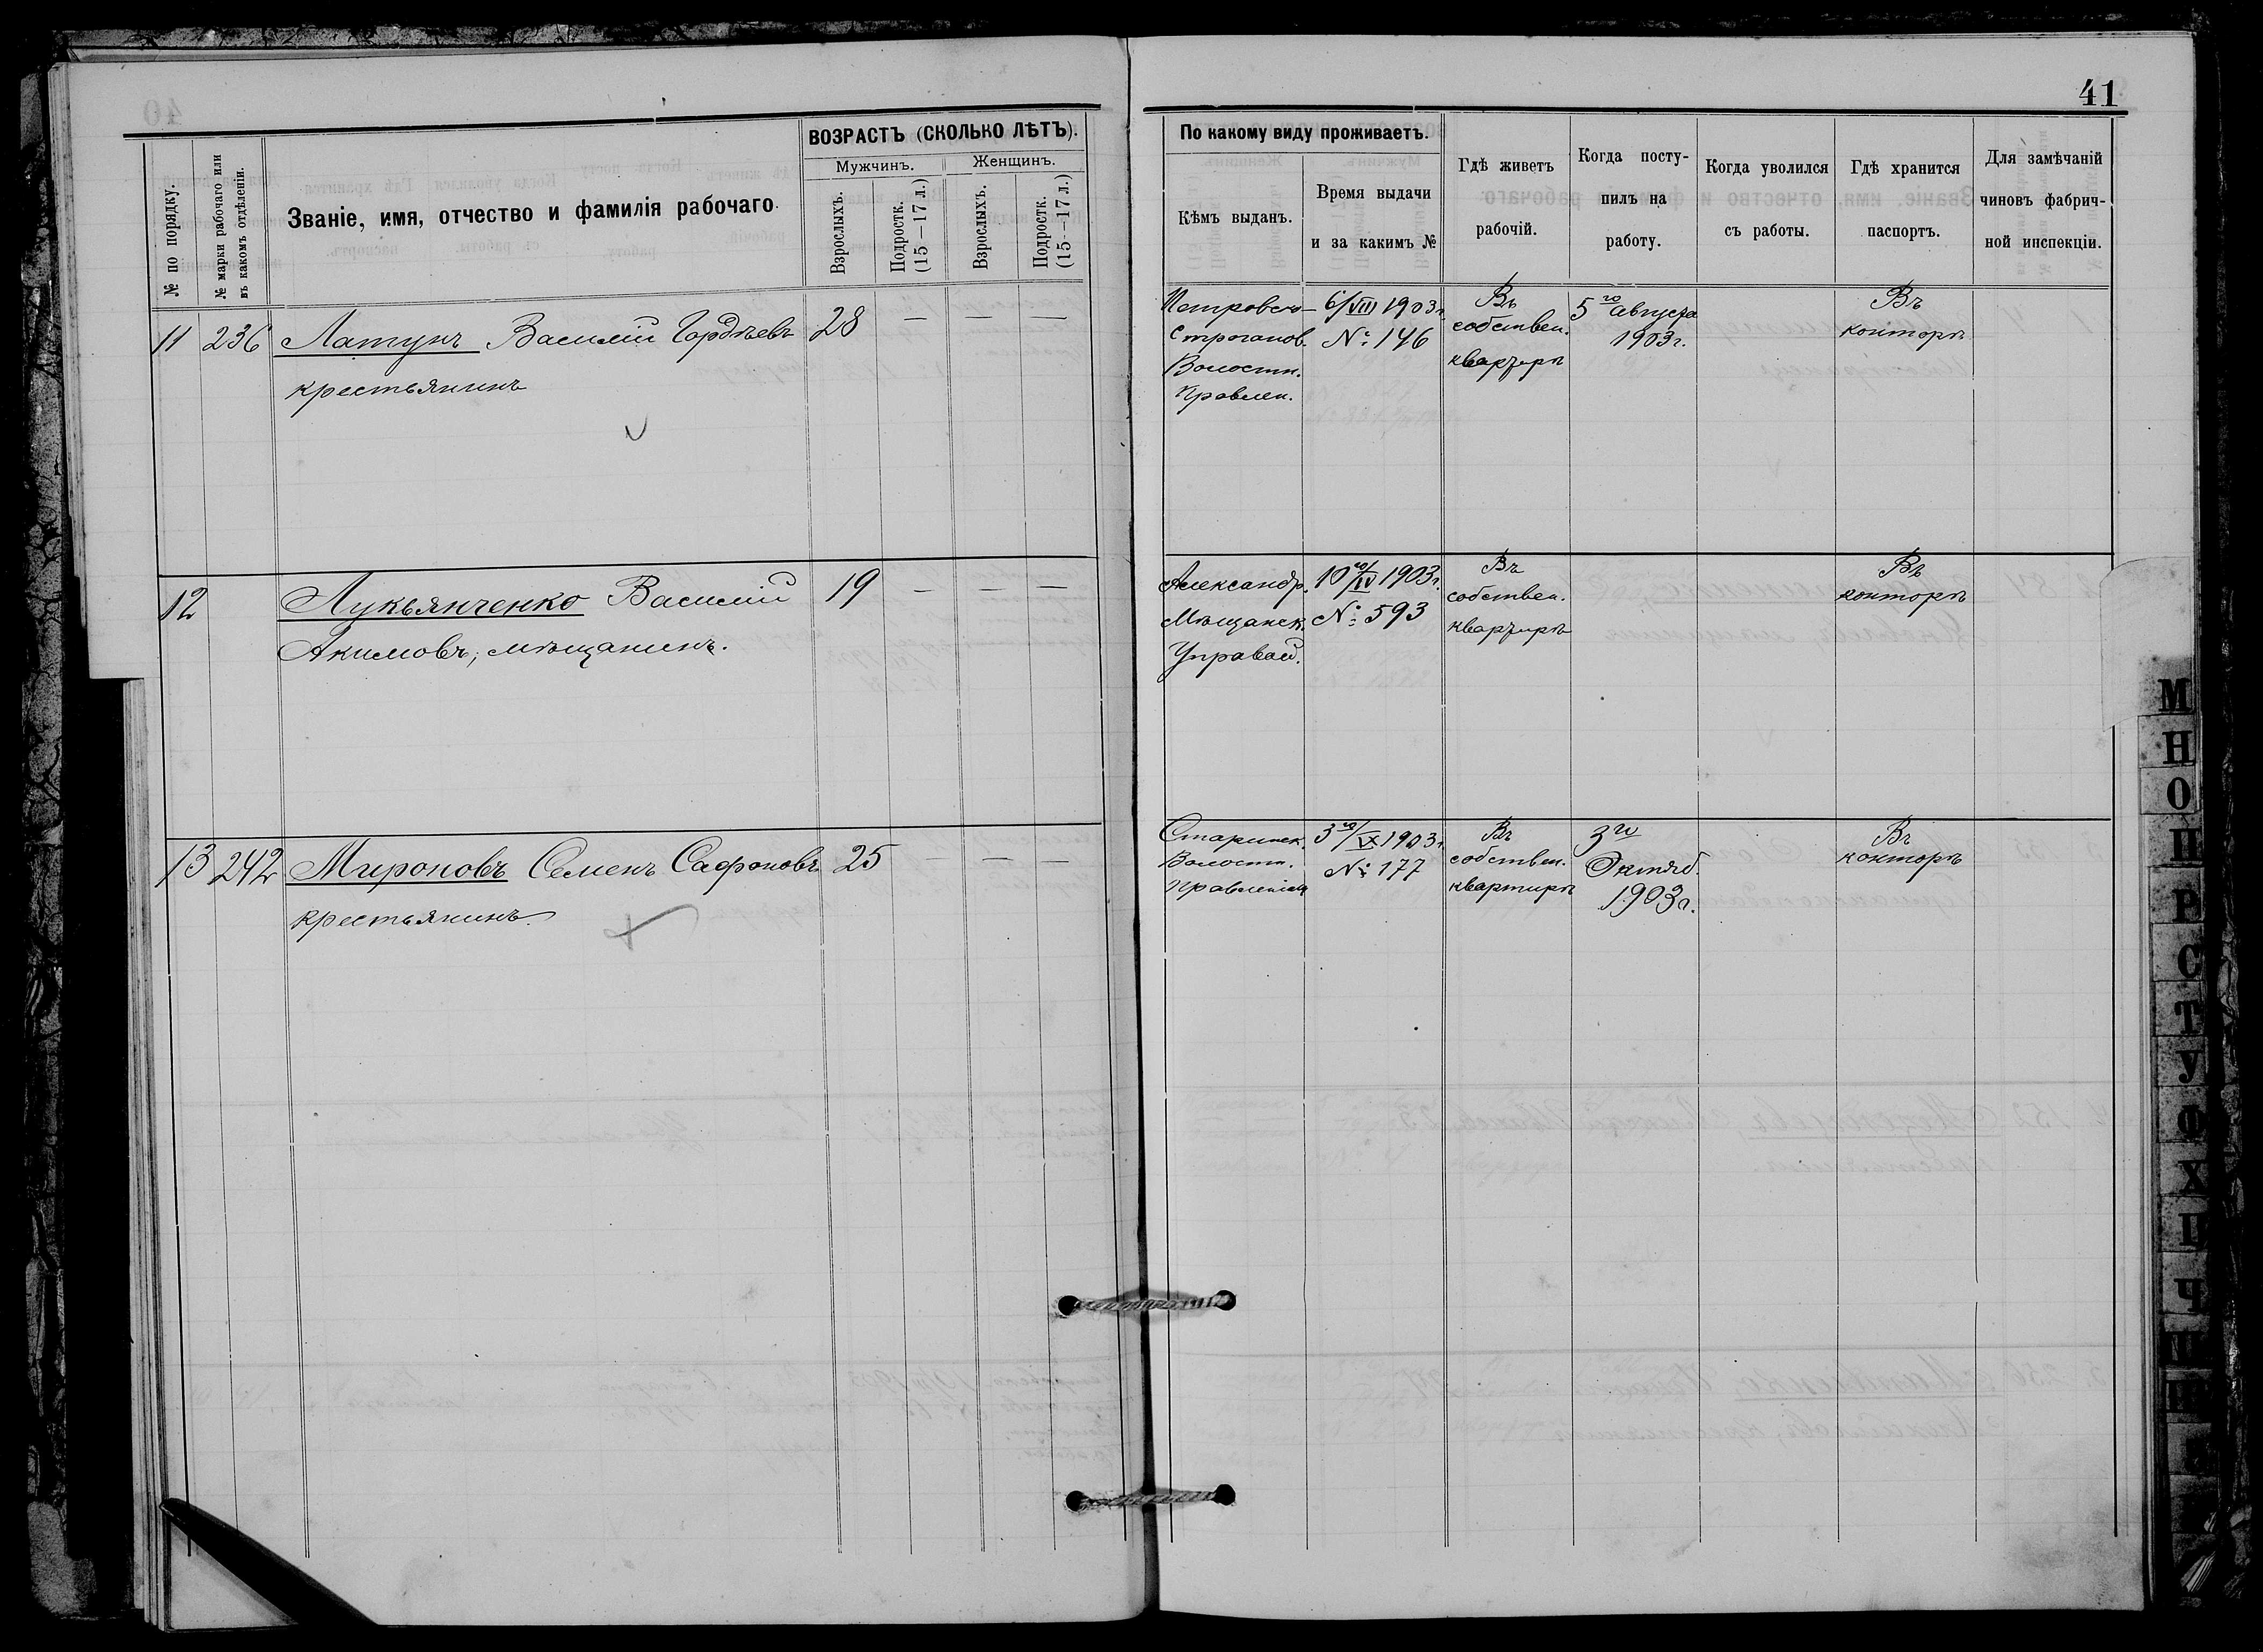 41
ВОЗРАСТЪ (СКОЛЬКО ЛѢТЪ).
Мужчинъ.
Женщинъ.
№ по порядку.
№ марки рабочаго или
въ какомъ отдѣленіи.
Званіе, имя, отчество и фамилія рабочаго.
Взрослыхъ.
Подростк.
(15—17 л.)
Взрослыхъ.
Подростк.
(15—17 л.)
По какому виду проживаетъ.
Кѣмъ выданъ.
Время выдачи
и за какимъ №
Гдѣ живетъ
рабочій.
Когда посту-
пилъ на
работу.
Когда уволился
съ работы.
Гдѣ хранится
паспортъ.
Для замѣчаній
чиновъ фабрич-
ной инспекціи.
11 236 Латунъ Василій Гордѣевъ 28 — — —
крестьянинъ
Петровско-
Строганов.
Волостн.
Правлен.
6/VIII 1903 г.
№ 146
Въ
собствен.
квартирѣ
5го августа
1903 г.
Въ
конторѣ
12 Лукьянченко Василій 19 — — —
Акимовъ, мѣщанинъ.
Александр.
Мѣщанск.
Управой.
10го/IV 1903 г.
№ 593
Въ
собствен.
квартирѣ
Въ
конторѣ
13 242 Мироновъ Семенъ Сафоновъ 25 — —
крестьянинъ
Старинск.
Волостн.
Правленіем
3го/IX 1903 г.
№ 177
Въ
собствен.
квартирѣ
3го
Октяб.
1903 г.
Въ
конторѣ
М
Н
О
П
Р
С
Т
У
Ф
Х
Ц
Ч